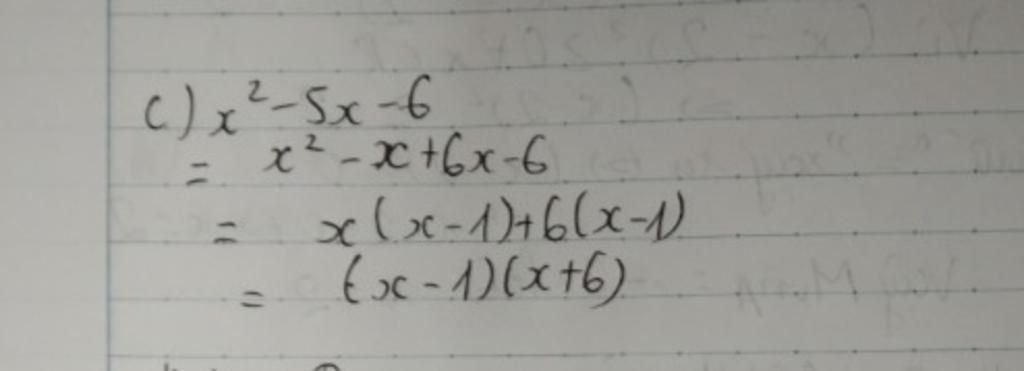 c) x² - 5x - 6
= x² - x + 6x - 6
= x(x - 1) + 6(x - 1)
= (x - 1)(x + 6)